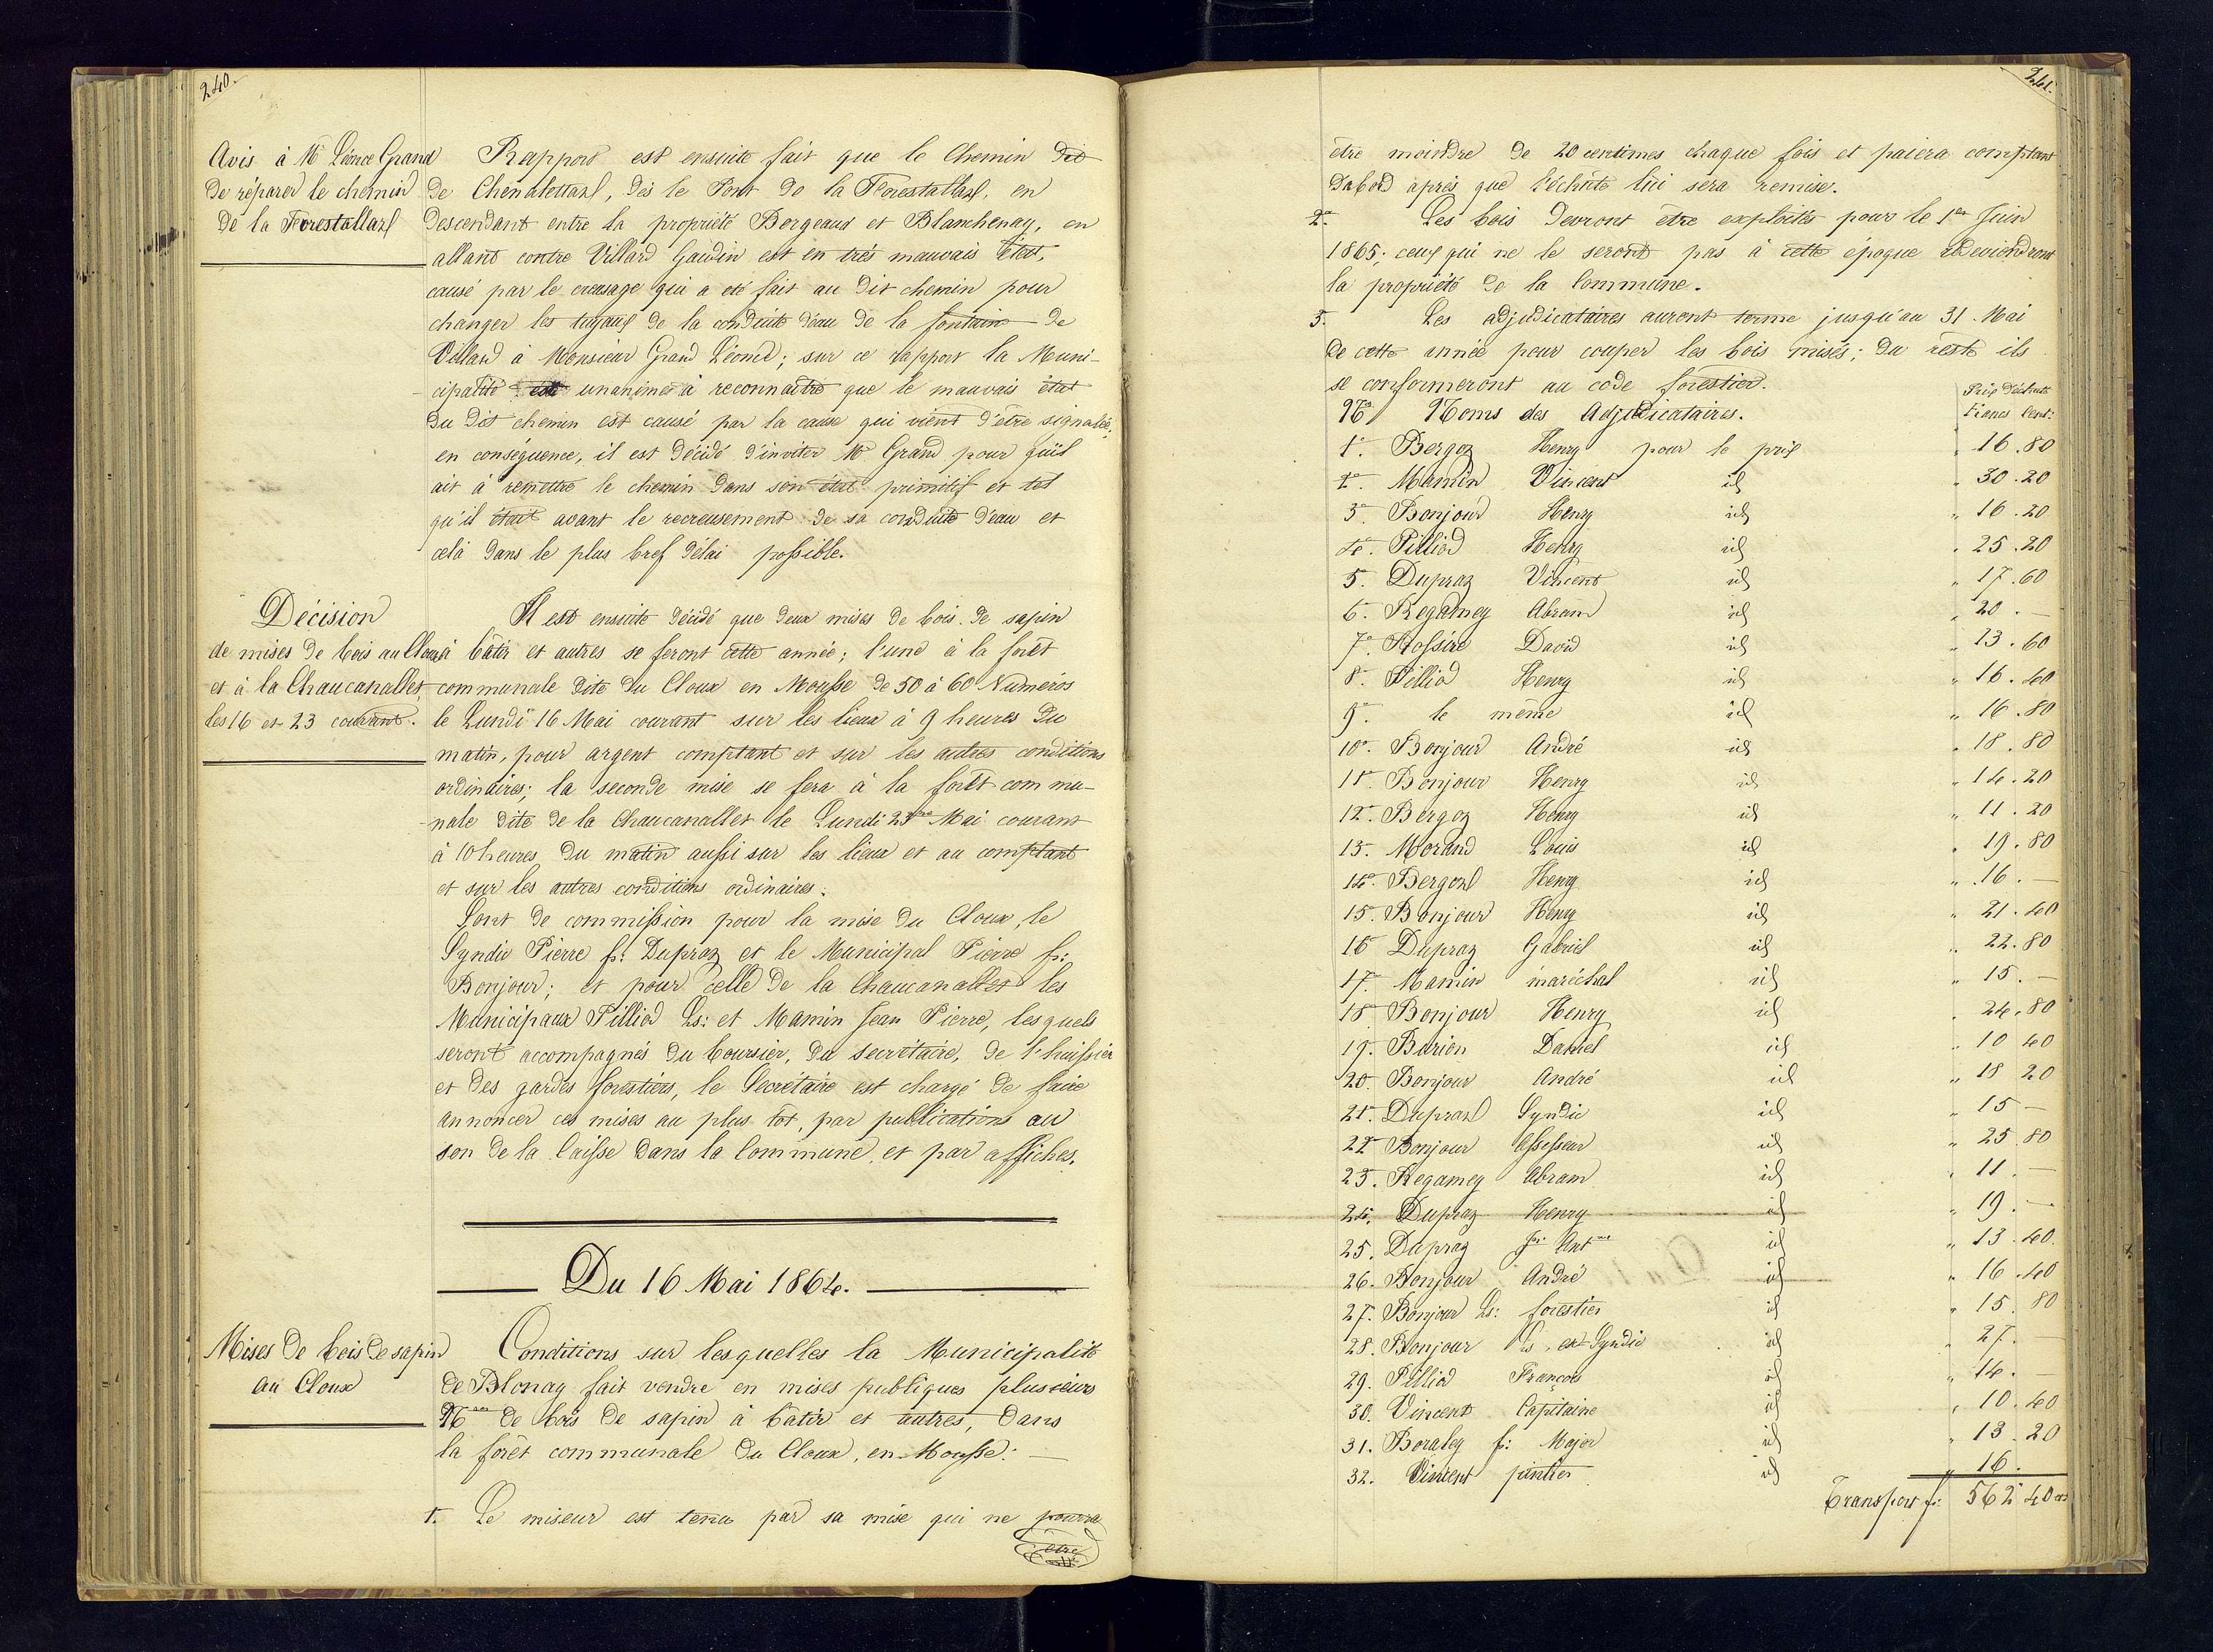 240.
Avis à Mr Léonce Grand
de réparer le chemin
de la Forestallaz
Rapport est ensuite fait que le Chemin dit
de Chenalettaz, dès le Pont de la Forestallaz, en
descendant entre la propriété Borgeaud et Blanchenay, en
allant contre Villard Gaudin est en très mauvais état,
causé par le creusage qui a été fait au dit chemin pour
changer les tuyaux de la conduite d'eau de la fontaine de
Villard à Monsieur Grand Léonce; sur ce rapport la Muni-
cipalité est unanime à reconnaître que le mauvais état
du dit chemin est causé par la cause qui vient d'être signalée;
en conséquence, il est décidé d'inviter Mr Grand pour qu'il
ait à remettre le chemin dans son état primitif et tel
qu'il était avant le recreusement de sa conduite d'eau et
celà dans le plus bref délai possible.
Décision
de mises de bois au Cloux
et à la Chaucanallet
les 16 et 23 courant.
Il est ensuite décidé que deux mises de bois de sapin
à bâtir et autres se feront cette année; l'une à la forêt
communale dite du Cloux en Mousse de 50 à 60 Numéros
le Lundi 16 Mai courant sur les lieux à 9 heures du
matin, pour argent comptant et sur les autres conditions
ordinaires; la seconde mise se fera à la forêt commu-
nale dite de la Chaucanallet le Lundi 23me Mai courant
à 10 heures du matin aussi sur les lieux et au comptant
et sur les autres conditions ordinaires.
Sont de commission pour la mise du Cloux, le
Syndic Pierre fs: Dupraz et le Municipal Pierre fs:
Bonjour; et pour celle de la Chaucanallet les
Municipaux Pilliod Ls: et Mamin Jean Pierre, lesquels
seront accompagnés du boursier, du secrétaire, de l'huissier
et des gardes forestiers, le Secrétaire est chargé de faire
annoncer ces mises au plus tôt, par publications au
son de la Caisse dans la Commune, et par affiches.
Du 16 Mai 1864.
Mises de bois de sapin
au Cloux
Conditions sur lesquelles la Municipalité
de Blonay fait vendre en mises publiques plusieurs
Nos de bois de sapin à bâtir et autres, dans
la forêt communale du Cloux, en Mousse:
1. Le miseur est tenu par sa mise qui ne pourra
être
241.
être moindre de 20 centimes chaque fois et paiera comptant
d'abord après que l'échute lui sera remise.
2. Les bois devront être exploités pour le 1er Juin
1865; ceux qui ne le seront pas à cette époque redeviendront
la propriété de la Commune.
3. Les adjudicataires auront terme jusqu'au 31 Mai
de cette année pour couper les bois misés; du reste ils
se conformeront au code forestier.
No Noms des Adjudicataires. Prix d'échute
Francs Cent:
1. Bergoz Henry pour le prix " 16.80
2. Mamin Vincent id " 30.20
3. Bonjour Henry id " 16.20
4. Pilliod Henry id " 25.20
5. Dupraz Vincent id " 17.60
6. Regamey Abram id " 20.—
7. Rossire David id " 13.60
8. Pilliod Henry id " 16.40
9. le même id " 16.80
10. Bonjour André id " 18.80
11. Bonjour Henry id " 14.20
12. Bergoz Henry id " 11.20
13. Morand Louis id " 19.80
14. Bergoz Henry id " 16.—
15. Bonjour Henry id " 21.40
16 Dupraz Gabriel id " 22.80
17. Mamin maréchal id " 15.—
18 Bonjour Henry id " 24.80
19. Burion Daniel id " 10 40
20. Bonjour André id " 18 20
21. Dupraz Syndic id " 15 —
22 Bonjour Assesseur id " 25.80
23. Regamey Abram id " 11.—
24. Dupraz Henry id " 19.—
25. Dupraz fs: Antne id " 13.40
26. Bonjour André id " 16.40
27. Bonjour Ls: forestier id " 15.80
28. Bonjour Ls, ex-Syndic id " 27.
29. Pilliod François id " 14.—
30. Vincent Capitaine id " 10.40
31. Boraley fs: Major id " 13.20
32. Vincent pintier id " 16.
Transport fr: 562 40